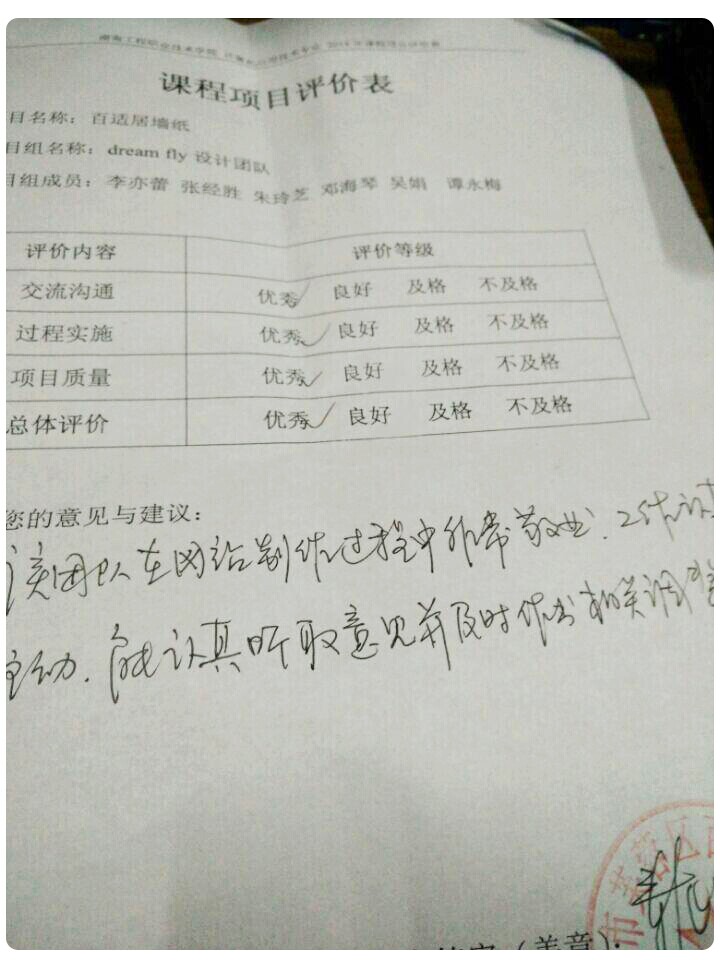 课程项目评价表
目名称：百适居墙纸
目组名称：dream fly 设计团队
目组成员：李亦蕾 张经胜 朱玲芝 邓海琴 吴娟 谭永梅
评价内容 评价等级
交流沟通 优秀✓ 良好 及格 不及格
过程实施 优秀✓ 良好 及格 不及格
项目质量 优秀✓ 良好 及格 不及格
总体评价 优秀✓ 良好 及格 不及格
您的意见与建议：
该团队在网站制作过程中非常敬业、工作认真
主动．能认真听取意见并及时作出相关调整
（盖章）：
市 区